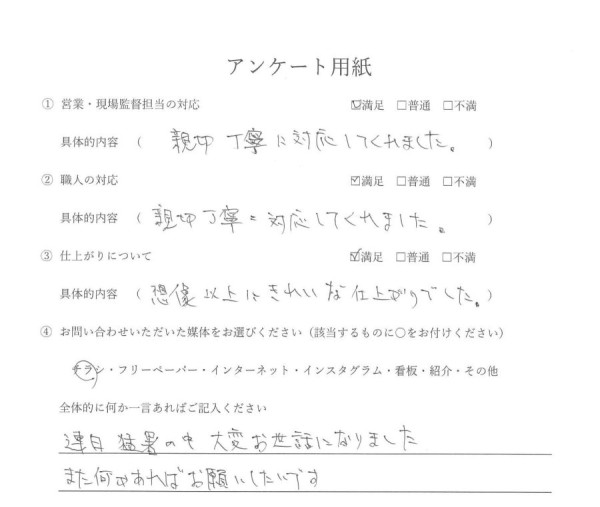 アンケート用紙
① 営業・現場監督担当の対応 ☑満足 □普通 □不満
具体的内容 ( 親切 丁寧に対応してくれました。 )
② 職人の対応 ☑満足 □普通 □不満
具体的内容 ( 親切丁寧に対応してくれました。 )
③ 仕上がりについて ☑満足 □普通 □不満
具体的内容 ( 想像以上にきれいな仕上がりでした。)
④ お問い合わせいただいた媒体をお選びください（該当するものに○をお付けください）
チラシ・フリーペーパー・インターネット・インスタグラム・看板・紹介・その他
全体的に何か一言あればご記入ください
連日 猛暑の中 大変お世話になりました
また何かあればお願いしたいです